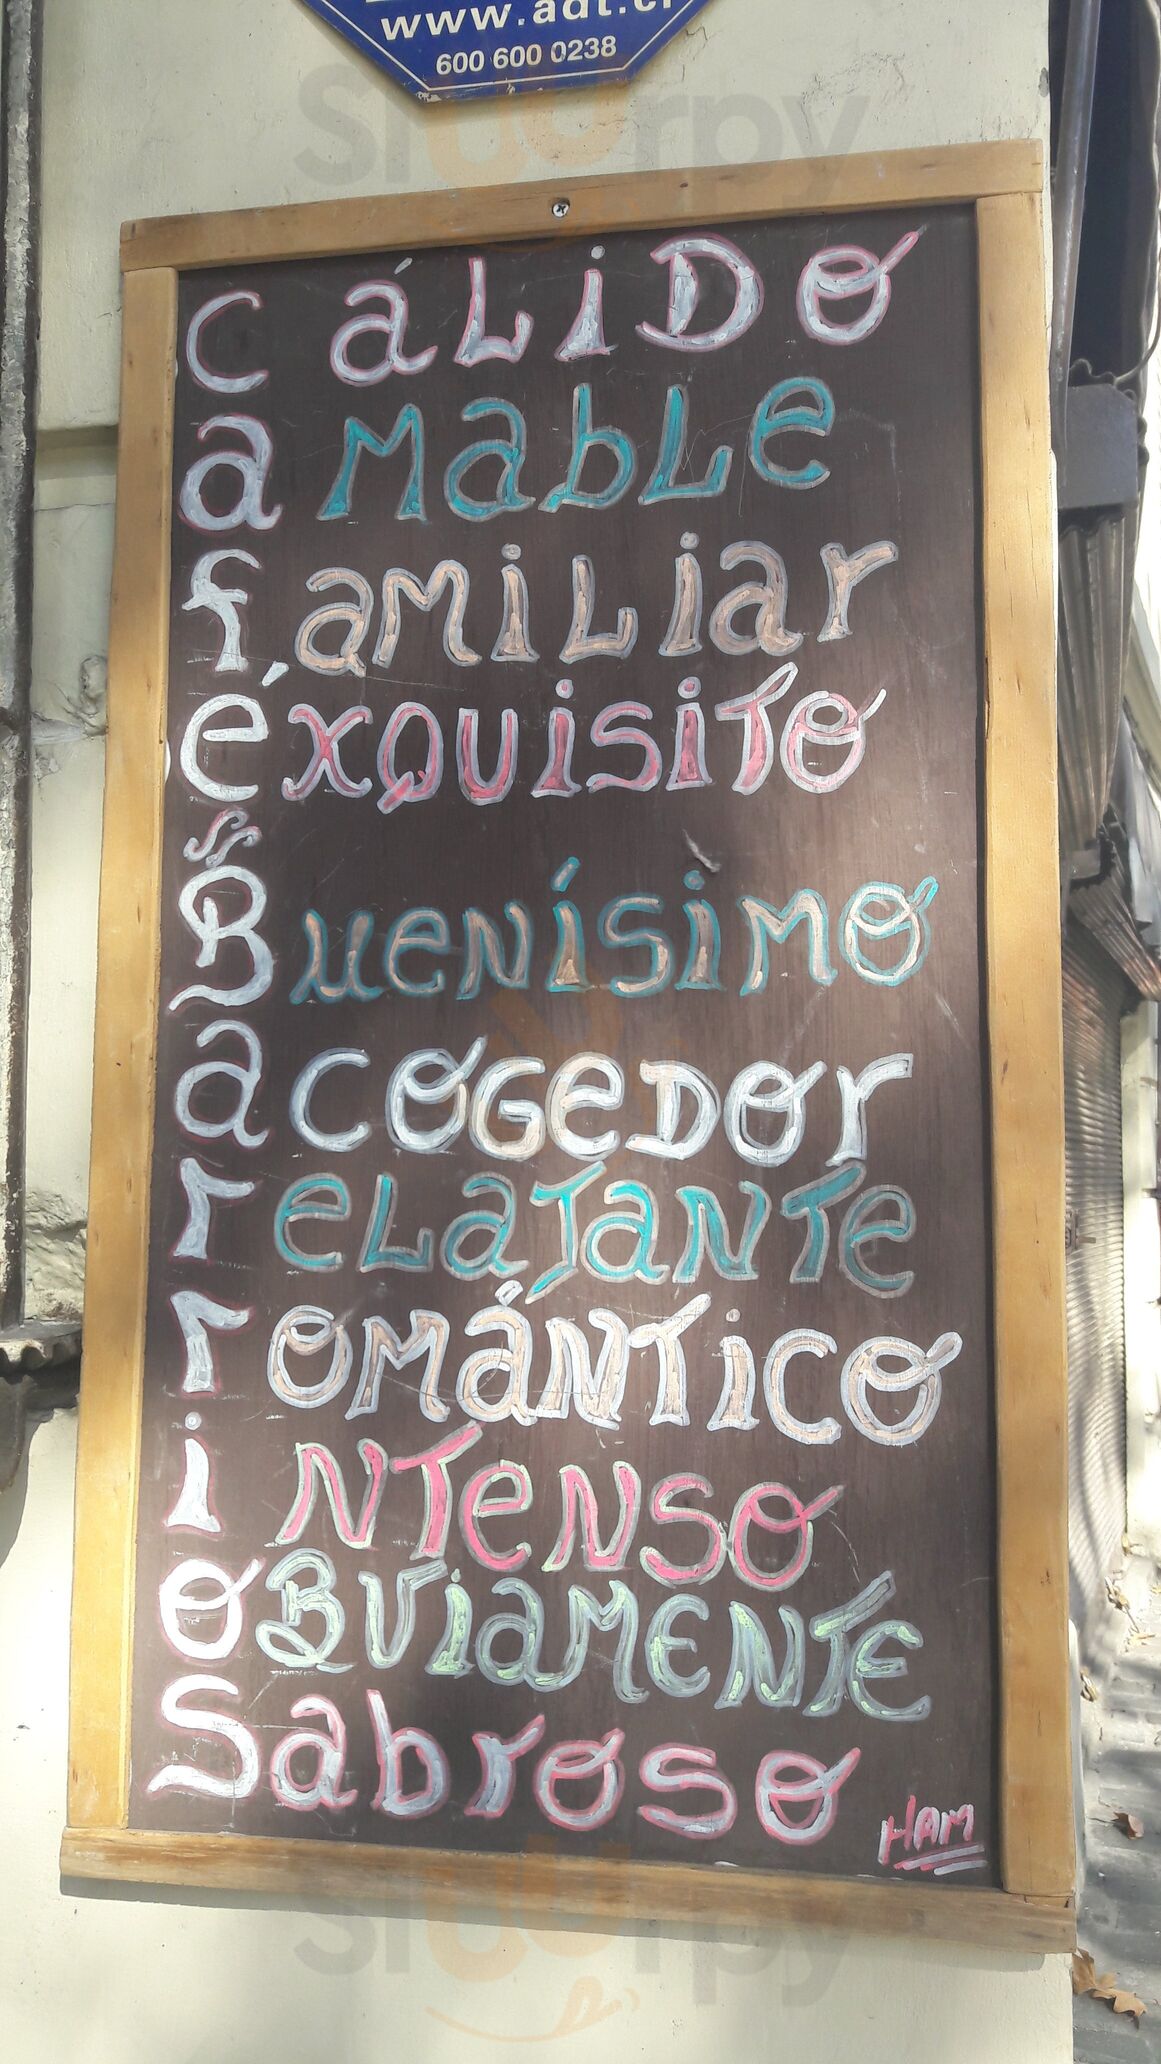 www.adt.cl
600 600 0238
Cálido
amable
familiar
éxquisito
Buenísimo
acogedor
relajante
romántico
intenso
oBviamente
Sabroso
HAM
Sluurpy
Sluurpy